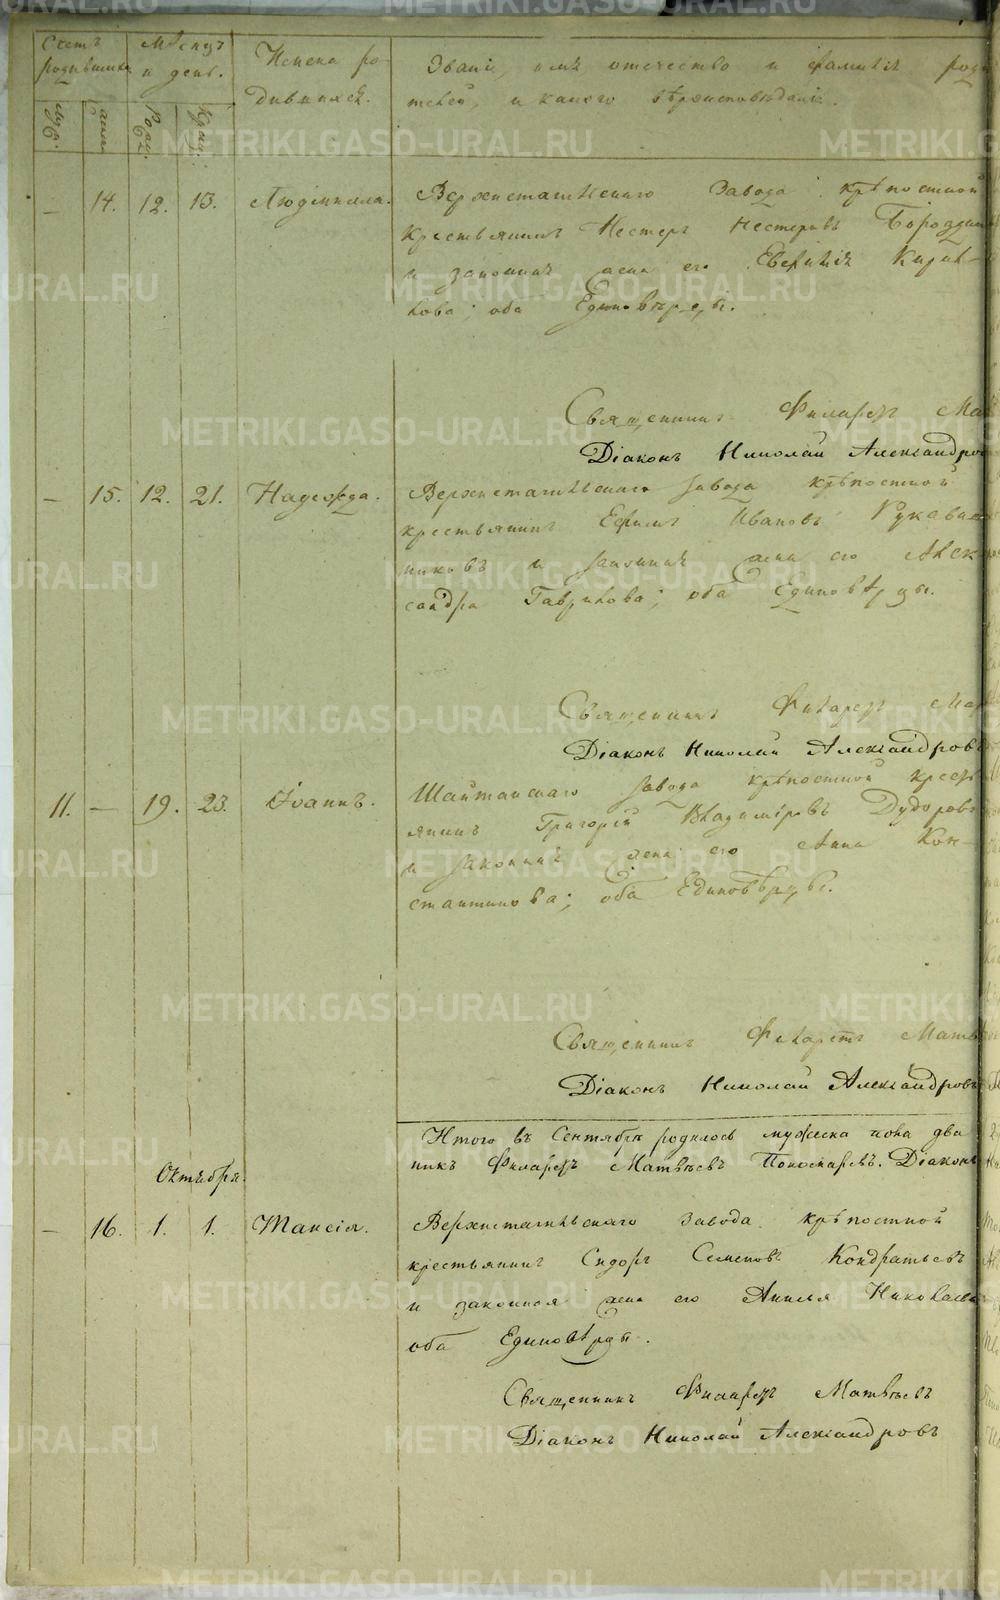 Счетъ родившихся
Мѣсяцъ и день.
Имена ро-
дившихся.
Званіе, имя отечество и фамилія роди
телей, и какого вѣроисповѣданія.
муж.
жен.
Рожд.
Крещ.
— 14. 12. 13. Людмилла. Верхнетагильскаго Завода крѣпостной
крестьянинъ Нестеръ Нестеровъ Бороздин
и законная жена его Евфимія Кирил-
лова; оба Единовѣрцы.
Священникъ Филаретъ Мат
Діаконъ Николай Александров
— 15. 12. 21. Надежда. Верхнетагильскаго завода крѣпостной
крестьянинъ Ефимъ Ивановъ Рукавиш
никовъ и законная жена его Алек
сандра Гаврилова; оба Единовѣрцы.
Священникъ Филаретъ Мат
Діаконъ Николай Александровъ
11. — 19. 23. Іоаннъ. Шайтанскаго завода крѣпостной крест
янинъ Григорій Владиміровъ Дудоровъ
и законная жена его Анна Кон-
стантинова; оба Единовѣрцы.
Священникъ Филаретъ Матв
Діаконъ Николай Александровъ
Итого въ Сентябрѣ родилось мужеска пола два
никъ Филаретъ Матвѣевъ Пономаревъ. Діаконъ
Октября.
— 16. 1. 1. Таисія. Верхнетагильскаго завода крѣпостной
крестьянинъ Сидоръ Семеновъ Кондратьевъ
и законная жена его Николаева
оба Единовѣрцы.
Священникъ Филаретъ Матвѣевъ
Діаконъ Николай Александровъ
METRIKI.GASO-URAL.RU